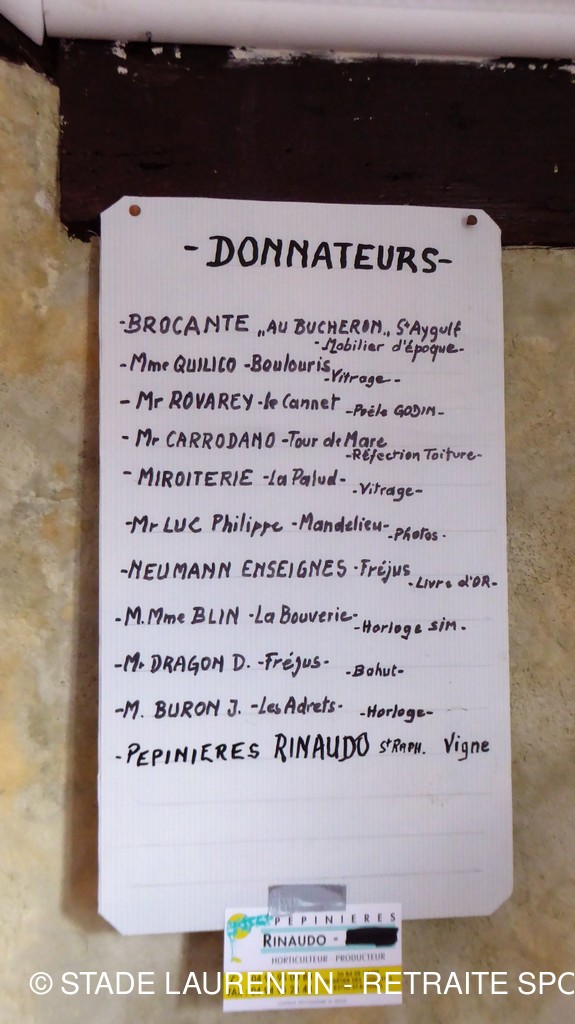 - DONNATEURS-
-BROCANTE „AU BUCHERON„ St Aygulf
-Mobilier d'époque-
-Mme QUILICO -Boulouris
-Vitrage--
- Mr ROVAREY -le Cannet -Poêle GODIN-
- Mr CARRODANO -Tour de Mare
-Réfection Toiture-
- MIROITERIE -La Palud- -Vitrage-
-Mr LUC Philippe -Mandelieu- -Photos-
-NEUMANN ENSEIGNES -Fréjus
-Livre d'OR-
-M.Mme BLIN -La Bouverie- -Horloge SIM.
-Mr DRAGON D. -Fréjus- -Bahut-
-M. BURON J. -Les Adrets- -Horloge-
-PEPINIERES RINAUDO St RAPH. Vigne
PEPINIERES
RINAUDO -
HORTICULTEUR PRODUCTEUR
© STADE LAURENTIN - RETRAITE SPO